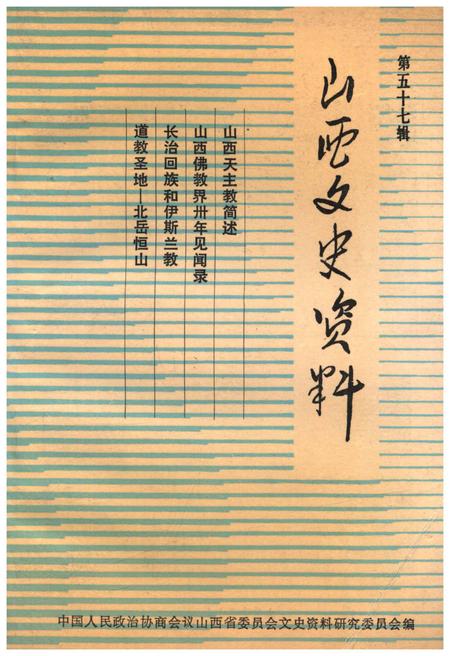 第五十七辑
山西文史资料
山西天主教简述
山西佛教界卅年见闻录
长治回族和伊斯兰教
道教圣地—北岳恒山
中国人民政治协商会议山西省委员会文史资料研究委员会编